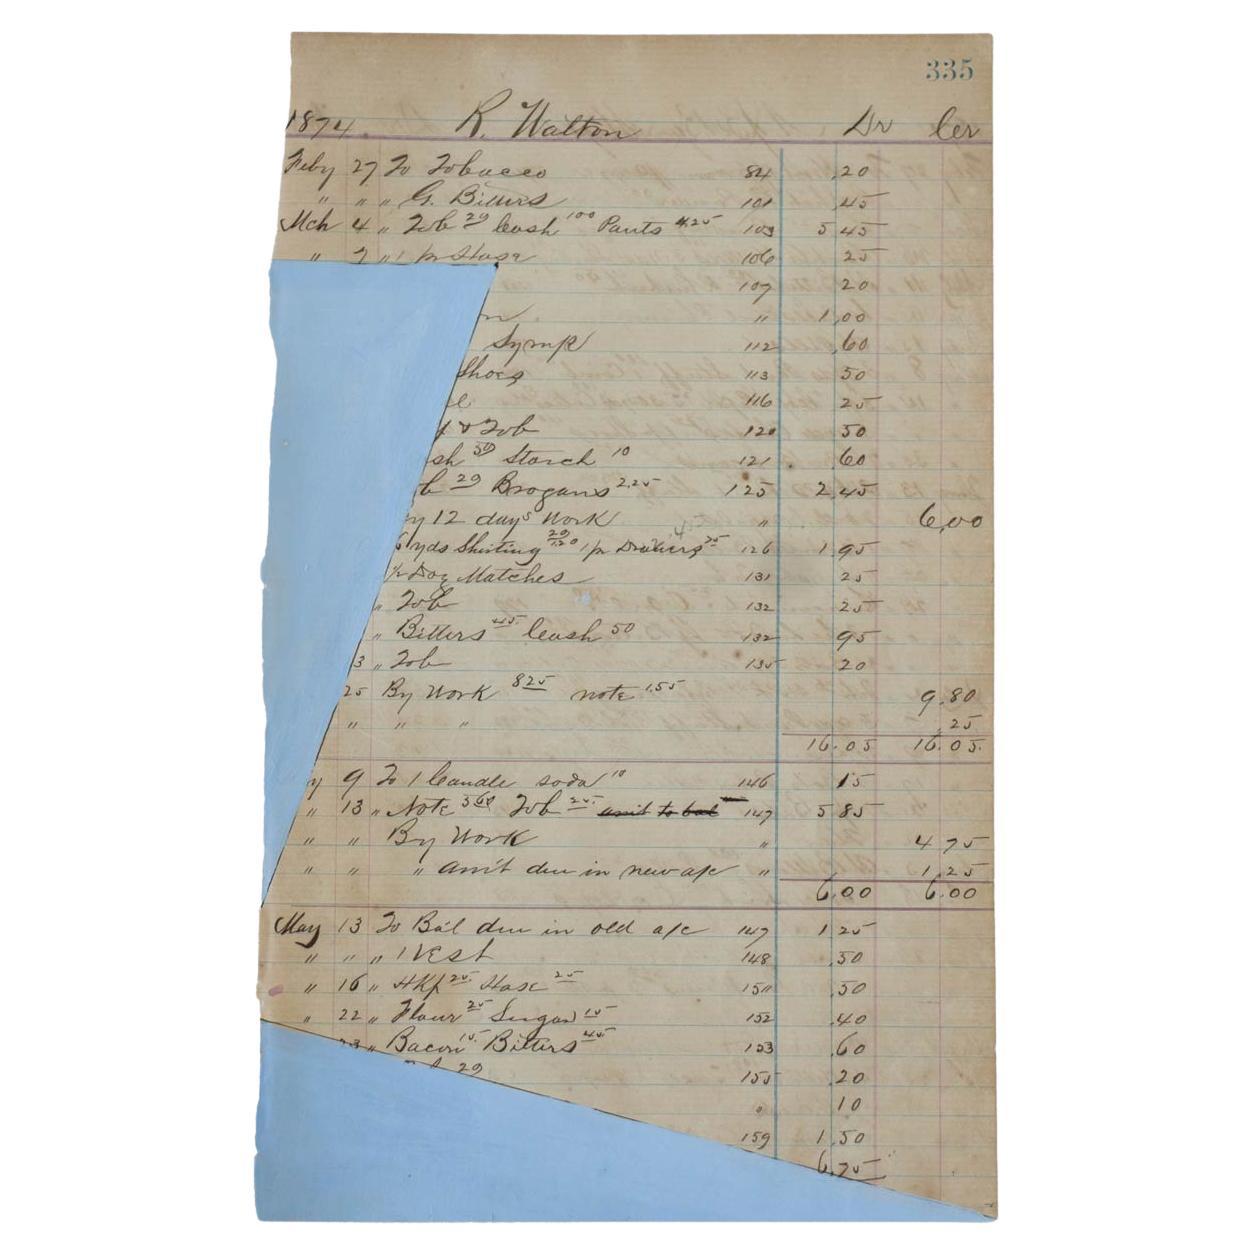 335
1874. R. Walton Dr Cr
Feby 27 To Tobacco 84 .20
" " " G. Bitters 101 .45
Mch 4 " Tob 20 Cash 100 Pants 4.25 103 5 45
" 7 " 1 pr Hose 106 25
107 20
" 1.00
Syrup 112 .60
Shoes 113 50
116 25
& Tob 120 50
sh 50 Starch 10 121 .60
b 20 Brogans 2.25 125 2.45
y 12 days Work " 6.00
6 yds Shirting 20 1.20 1 pr Drawers 75 126 1.95
½ Doz Matches 131 25
" Tob 132 25
" Bitters 45 Cash 50 132 95
3 " Tob 135 20
25 By Work 8 25 note 1.55 9.80
" " " .25
16.05 16.05.
y 9 To 1 Candle soda 10 146 15
" 13 " Note 5 60 Tob 25 amt to bal 147 5 85
" " By Work " 4 75
" " " am't due in new a/c " 1.25
6.00 6.00
May 13 To Bal due in old a/c 147 1 25
" " " 1 Vest 148 .50
" 16 " Hkf 25 Hose 25 150 .50
" 22 " Flour 25 Sugar 15 152 .40
23 " Bacon 15 Bitters 45 153 .60
20 155 .20
" 10
159 1.50
6.75